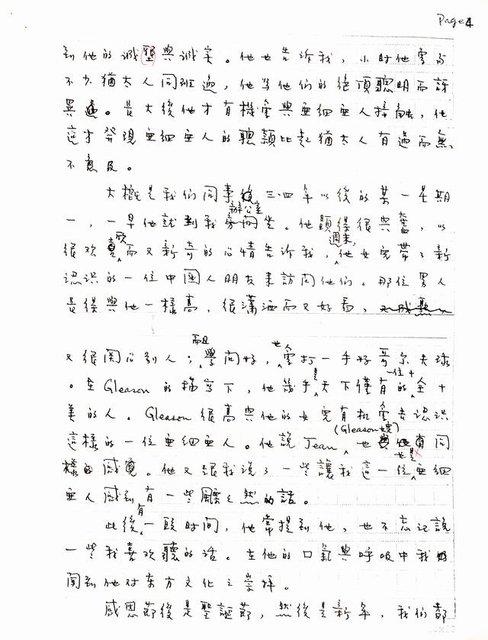 Page 4
到他的誠墾與誠実。他也告訴我,小时他曾與
不少猶太人同班過,他為他们的絕頂聰明而訝
異過。長大後他才有機會與亜细亜人接触,他
這才發現亜细亜人的聰穎比起猶太人有過而無
不及。
大概是我们同事後三四年以後的某一星期
一,一早他就到我辦公室。他顯得很興奮,以
很欢喜而又新奇的心情告訴我,週末他女兒帶了新
認識的一位中國人朋友来訪问他们。那位男人
長得與他一樣高,很瀟洒而又好看,
又很関心别人;而且學问好,也會打一手好哥尔夫球
。在Gleason的描寫下,他幾乎是天下僅有的一位十全十
美的人。Gleason很高興他的女兒有机會去認識
這樣的一位亜细亜人。他說Jean(Gleason太太)也有同
樣的感覺。他又跟我说了一些讓我這也是一位亜细
亜人感到有一些飄飄然的話。
此後有一段时间,他常提到他,也不忘记說
一些我喜欢聽的话。在他的口氣與呼吸中我
聞到他对东方文化之崇拜。
感恩節後是聖誕節,然後是新年,我们都